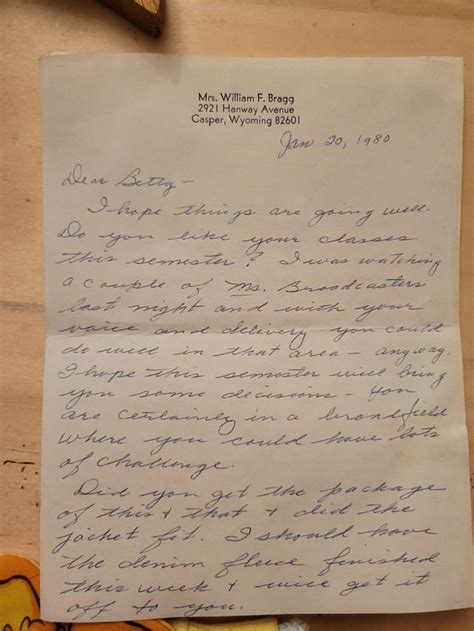 Mrs. William F. Bragg
2921 Hanway Avenue
Casper, Wyoming 82601
Jan 20, 1980
Dear Betty -
I hope things are going well.
Do you like your classes
this semester? I was watching
a couple of Ms. Broadcasters
last night and with your
voice and delivery you could
do well in that area - anyway,
I hope this semester will bring
you some decisions - You
are certainly in a broad field
where you could have lots
of challenge.
Did you get the package
of this & that & did the
jacket fit. I should have
the denim fleece finished
this week & will get it
off to you.